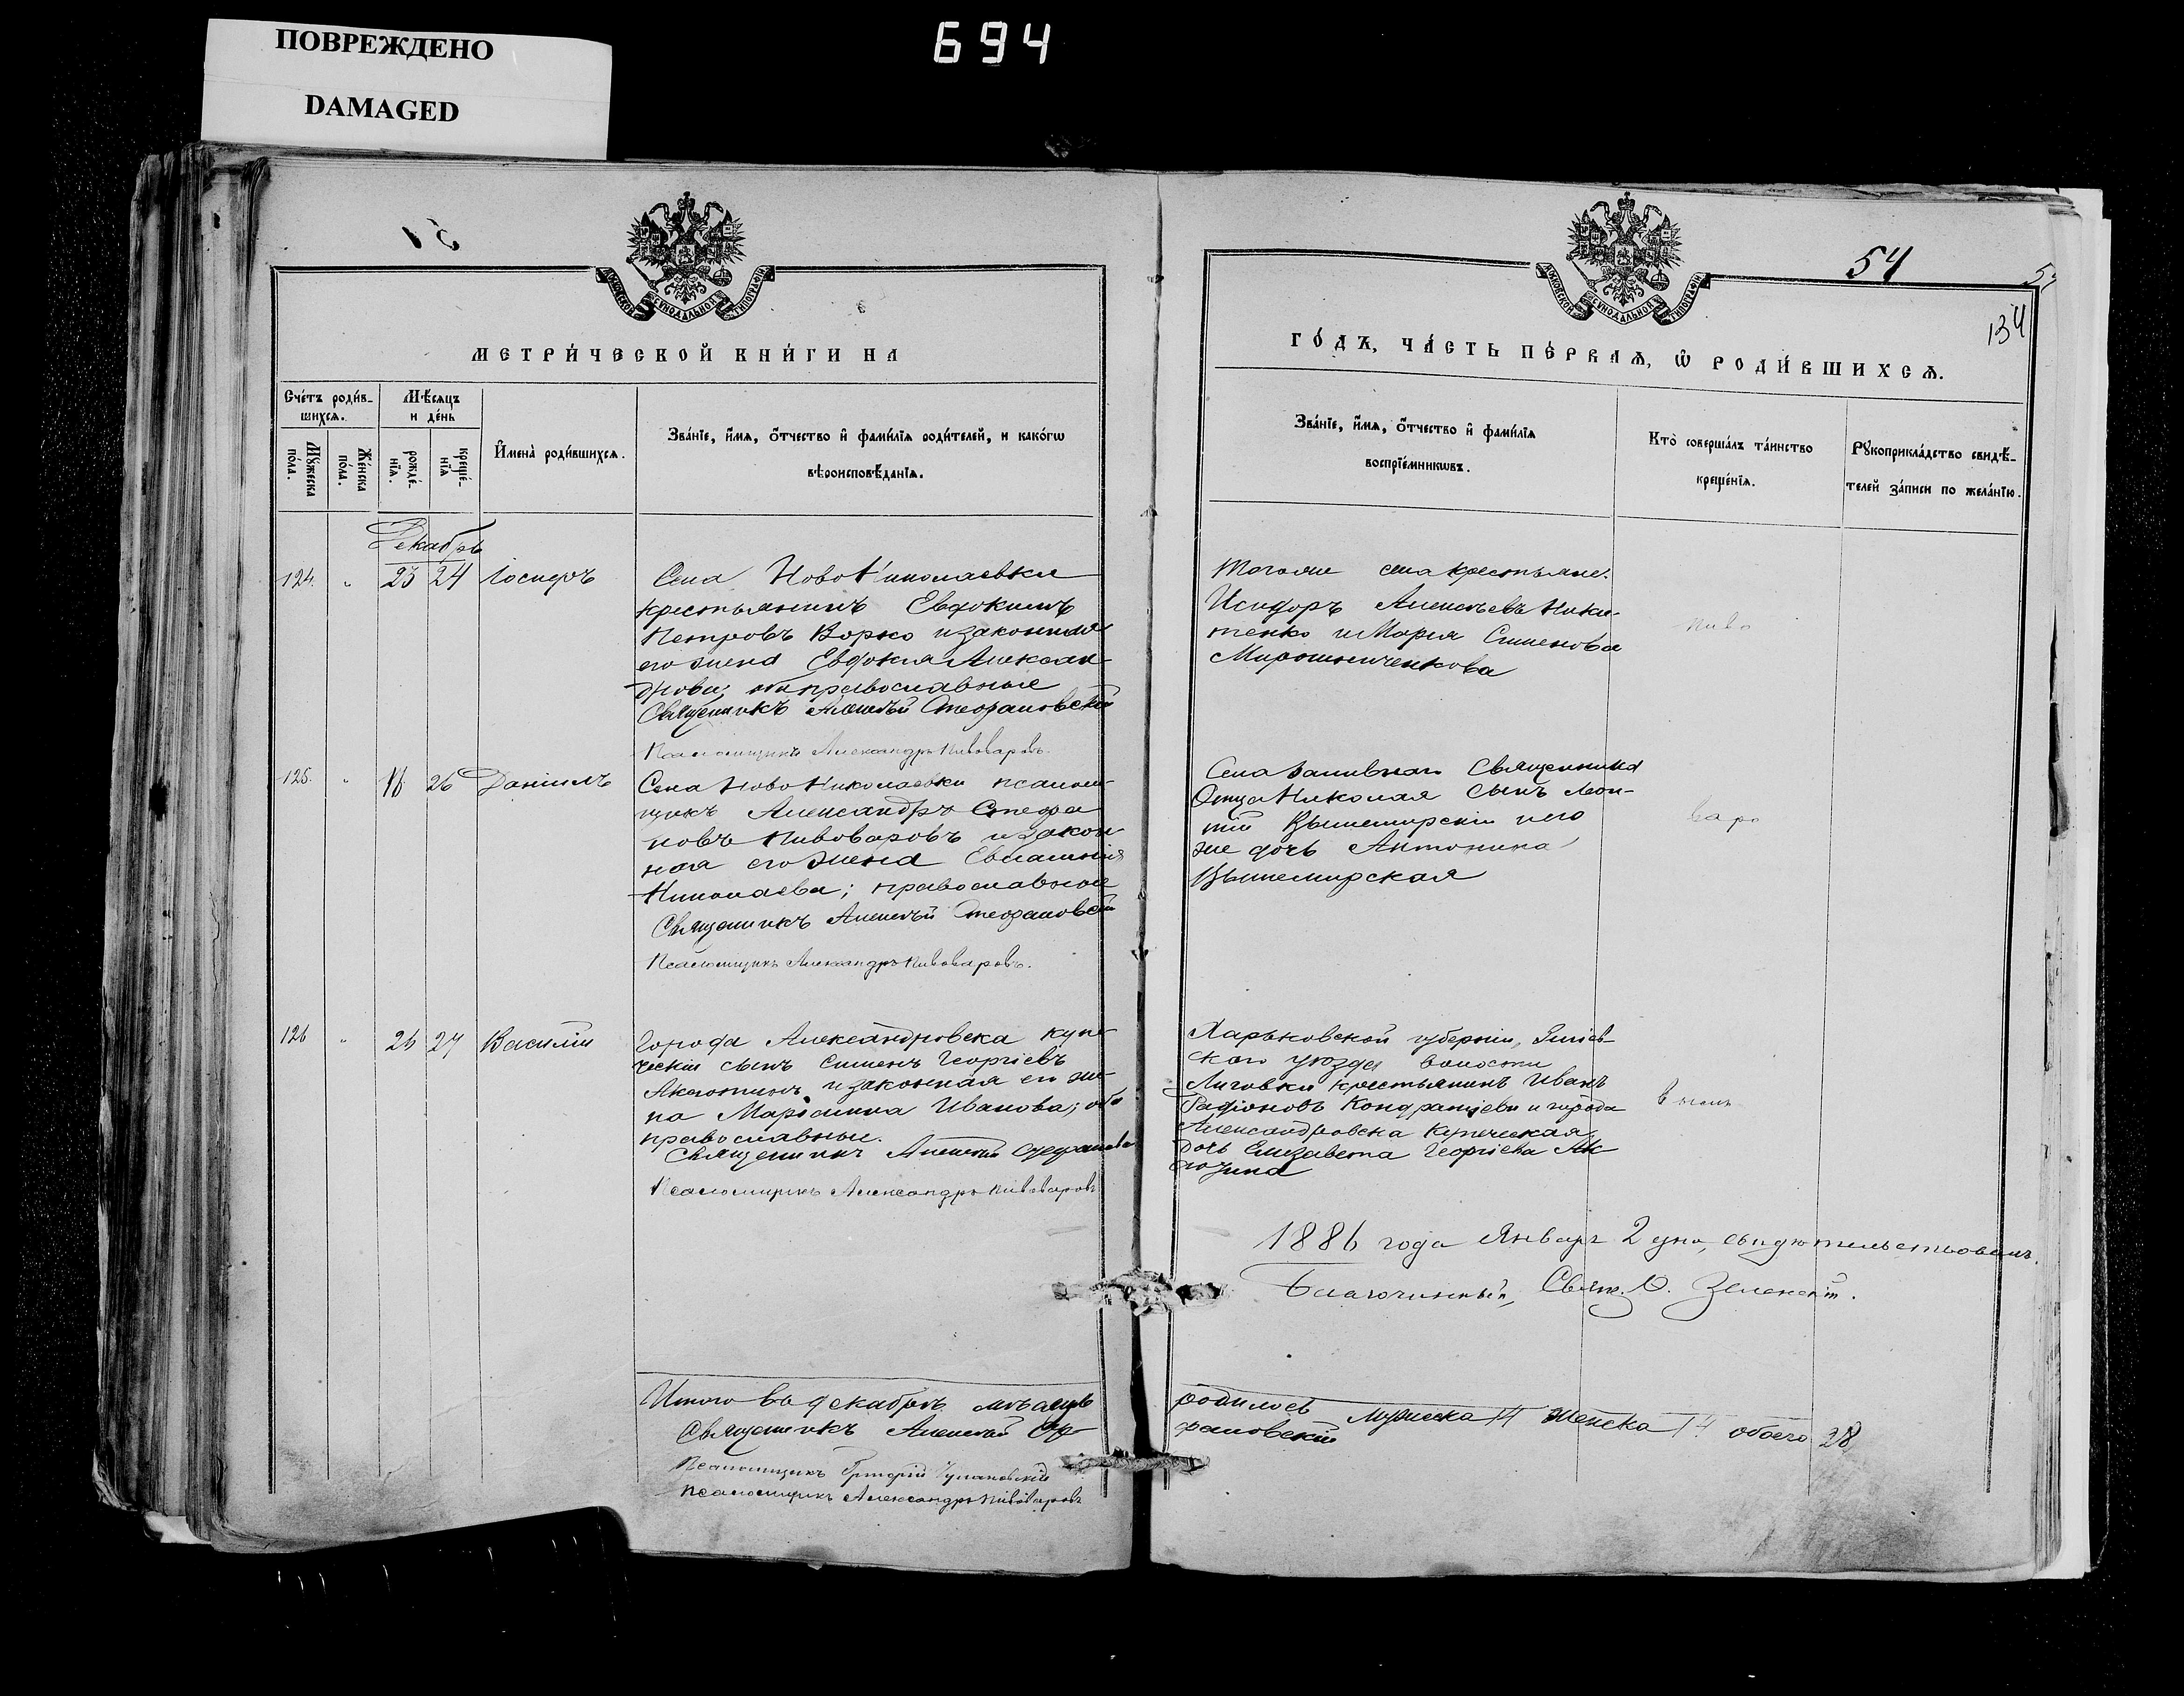 ПОВРЕЖДЕНО
DAMAGED
694
51
МЕТРИ́ЧЕСКОЙ КНИ́ГИ НА
Сче́тъ роди́в-
шихсѧ.
Мꙋ́жеска по́ла.
Же́нска по́ла.
Мѣ́сяцъ
и де́нь
рожде́-
нїѧ.
креще́-
нїѧ
И҆мена̀ роди́вшихсѧ.
Зва́нїе, и҆́мѧ, ѻ҆́тчество и҆ фами́лїѧ роди́телей, и како́гѡ
вѣроисповѣ́данїѧ.
Декабрь
124. " 23 24 Іосифъ
Села Ново Николаевки
крестьянинъ Евдокимъ
Петровъ Ворко и законная
его жена Евдокія Алексан-
дрова; оба православные
Священникъ Алексѣй Стефановскій
Псаломщикъ Александръ Пивоваровъ.
125. " 16 26 Даніилъ
Села Ново Николаевки псалом-
щикъ Александръ Стефа
новъ Пивоваровъ и закон
ная его жена Евлампія
Николаева; православные
Священникъ Алексѣй Стефановскій
Псаломщикъ Александръ Пивоваровъ.
126 " 26 27 Василій
Города Александровска купе
ческій сынъ Симеонъ Георгіевъ
и законная его же-
на Маріанна Иванова; оба
православные.
Священникъ Алексѣй Стефановс
Псаломщикъ Александръ Пивоваровъ
Итого въ декабрѣ мѣсяцѣ
Священникъ Алексѣй Сте
Псаломщикъ Григорій
Псаломщикъ Александръ Пивоваровъ
54
134
ГО́ДЪ, ЧА́СТЬ ПЕ́РВАѦ, Ѡ҆ РОДИ́ВШИХСѦ.
Зва́нїе, и҆́мѧ, ѻ҆́тчество и҆ фами́лїѧ
воспрїе́мникѡвъ.
Кто̀ соверша́лъ та́инство
креще́нїѧ.
Рꙋкоприкла́дство свидѣ́-
телей за́писи по жела́нїю.
Тогоже села крестьяне:
Исидоръ Алексѣевъ Ники-
тенко и Марія Симеонова
Мирошниченкова
пиво
Села Заливнаго Священника
Отца Николая сынъ Леон-
тій Вышемирскій и его
же дочь Антонина
Вышемирская
варо
Харьковской губерніи, Зміев-
скаго уѣзда волости
Лиговки крестьянинъ Иванъ
Родіоновъ Кондратіевъ и города
Александровска купеческая
дочь Елизавета Георгіева Ак-
вымъ
1886 года Января 2 дня, свидѣтельствовалъ
Благочинный, Свящ. Зеленскій.
родилось мужеска 14 женска 14 обоего 28
фановскій